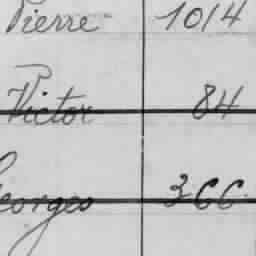 Pierre 1014
Victor 84
Georges 3CC